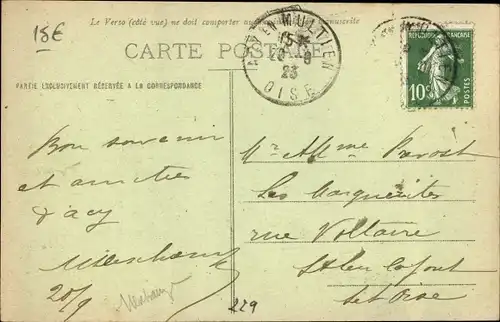 15€
Le Verso (côté vue) ne doit comporter manuscrite
CARTE POSTALE
PARTIE EXCLUSIVEMENT RÉSERVÉE A LA CORRESPONDANCE
ACY EN MULTIEN
15
20 - 9
23
OISE
RÉPUBLIQUE FRANÇAISE
10c
POSTES
Bon souvenir
et amitiés
d'acy
20/9
Mr et Mme Prevost
Les Marguerites
rue Voltaire
St Leu la foret
Set Oise
229